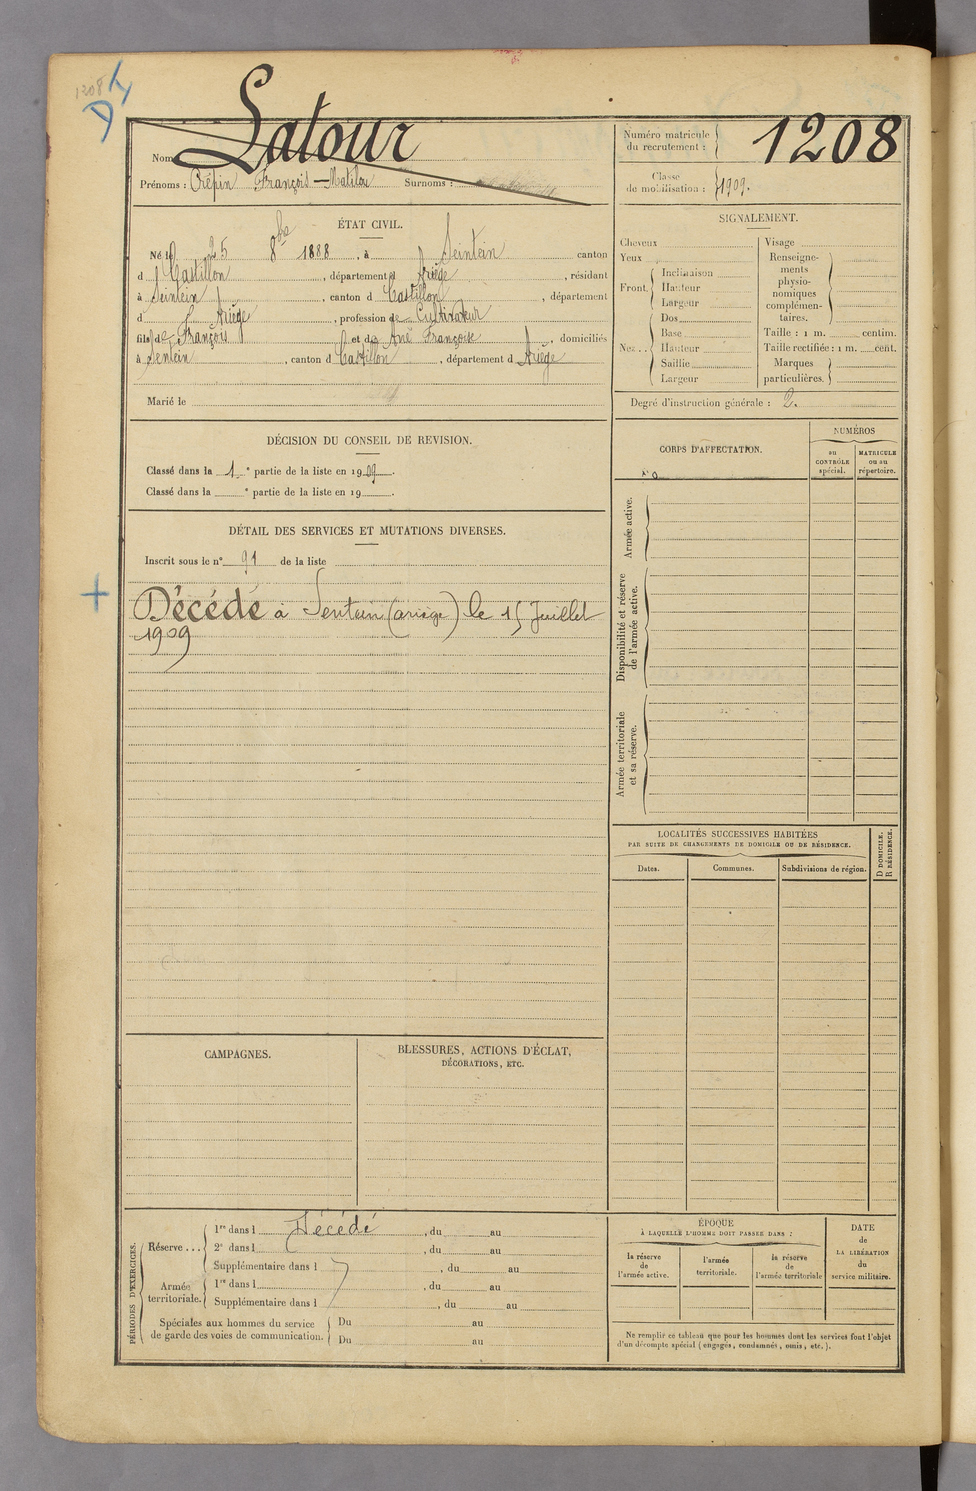 1208
Latour
1208
Nom
Numéro matricule du recrutement :
Prénoms : Crépin François - Matilou Surnoms :
Classe de mobilisation : 1909.
ÉTAT CIVIL.
Né le 25 8bre 1888, à Seintein canton
d Castillon, département d Ariège, résidant
à Seintein, canton d Castillon, département
d l'Ariège, profession de Cultivateur
fils de François et de Ané Françoise, domiciliés
à Sentein, canton d Castillon, département d Ariège
Marié le
DÉCISION DU CONSEIL DE REVISION.
Classé dans la 1e partie de la liste en 1909.
Classé dans la e partie de la liste en 19 .
DÉTAIL DES SERVICES ET MUTATIONS DIVERSES.
Inscrit sous le n° 91 de la liste
Décédé à Sentein (ariège) le 15 Juillet
1909
CAMPAGNES.
BLESSURES, ACTIONS D'ÉCLAT,
DÉCORATIONS, ETC.
PÉRIODES D'EXERCICES.
Réserve ...
1re dans l Décédé, du au
2e dans l , du au
Supplémentaire dans l , du au
Armée territoriale.
1re dans l , du au
Supplémentaire dans l , du au
Spéciales aux hommes du service
de garde des voies de communication.
Du au
Du au
SIGNALEMENT.
Cheveux
Yeux
Front.
Inclinaison
Hauteur
Largeur
Nez..
Dos
Base
Hauteur
Saillie
Largeur
Visage
Renseigne-
ments
physio-
nomiques
complémen-
taires.
Taille : 1 m. centim.
Taille rectifiée : 1 m. cent.
Marques
particulières.
Degré d'instruction générale : 2.
CORPS D'AFFECTATION.
NUMÉROS
au
CONTRÔLE
spécial.
MATRICULE
ou au
répertoire.
Armée active.
Disponibilité et réserve
de l'armée active.
Armée territoriale
et sa réserve.
LOCALITÉS SUCCESSIVES HABITÉES
PAR SUITE DE CHANGEMENTS DE DOMICILE OU DE RÉSIDENCE.
D DOMICILE.
R RÉSIDENCE.
Dates.
Communes.
Subdivisions de région.
ÉPOQUE
À LAQUELLE L'HOMME DOIT PASSER DANS :
la réserve
de
l'armée active.
l'armée
territoriale.
la réserve
de
l'armée territoriale
DATE
de
LA LIBÉRATION
du
service militaire.
Ne remplir ce tableau que pour les hommes dont les services font l'objet
d'un décompte spécial (engagés, condamnés, omis, etc.).